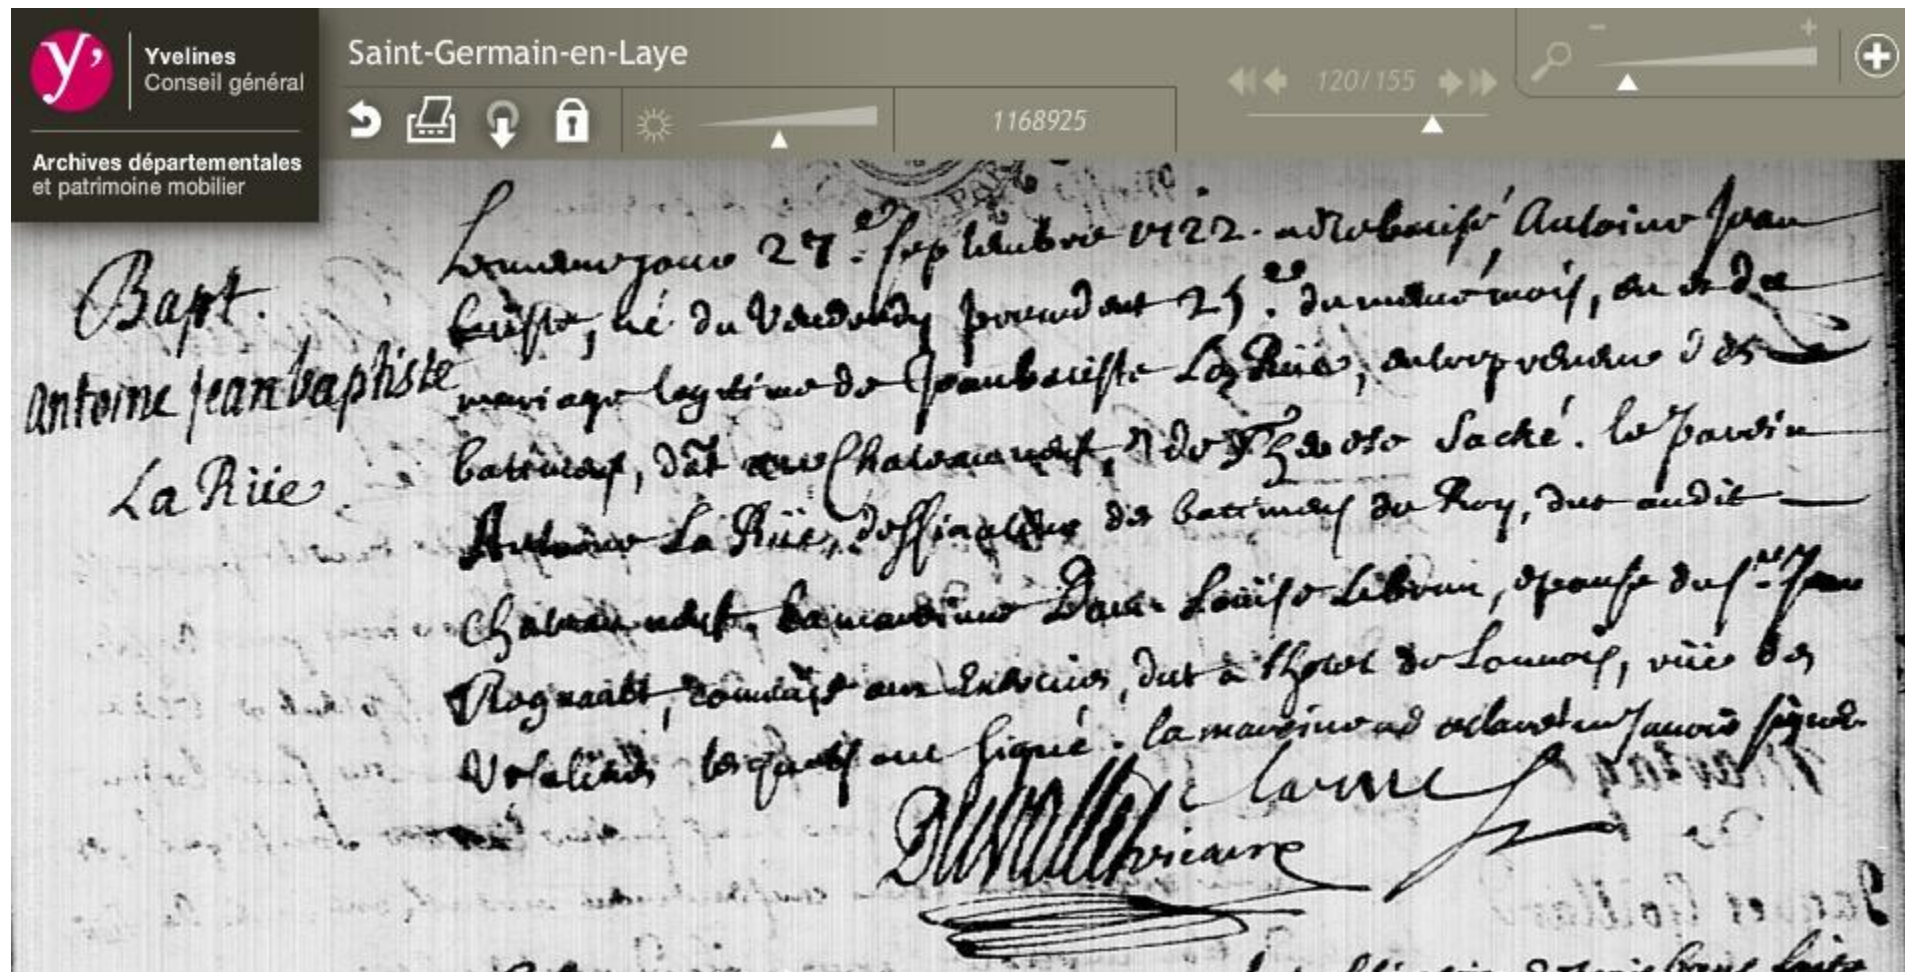 Yvelines
Conseil général
Archives départementales
et patrimoine mobilier
Saint-Germain-en-Laye
1168925
120/155
Bapt.
antoine jean baptiste
La Rüe
Le meme jour 27.e septembre 1722. a été batisé Antoine Jean
batiste, né du Vendredy precedent 25.e du meme mois, en et du
mariage legitime de Jean batiste La Rüe, entrepreneur des
batimens, dnt au Chateau neuf, & de Therese Saché. le parein
Antoine La Rüe, dessinateur des batimens du Roy, dnt audit
Chateau neuf, la mareinne Dame Loüise Lebrun, epouse du sr. Jean
Regnault, commis aux Exercices, dnt a l'hotel de Louvois, rüe des
Ursulines lesquels ont signé. la mareine a declaré ne savoir signer
larue
Duvallet vicaire